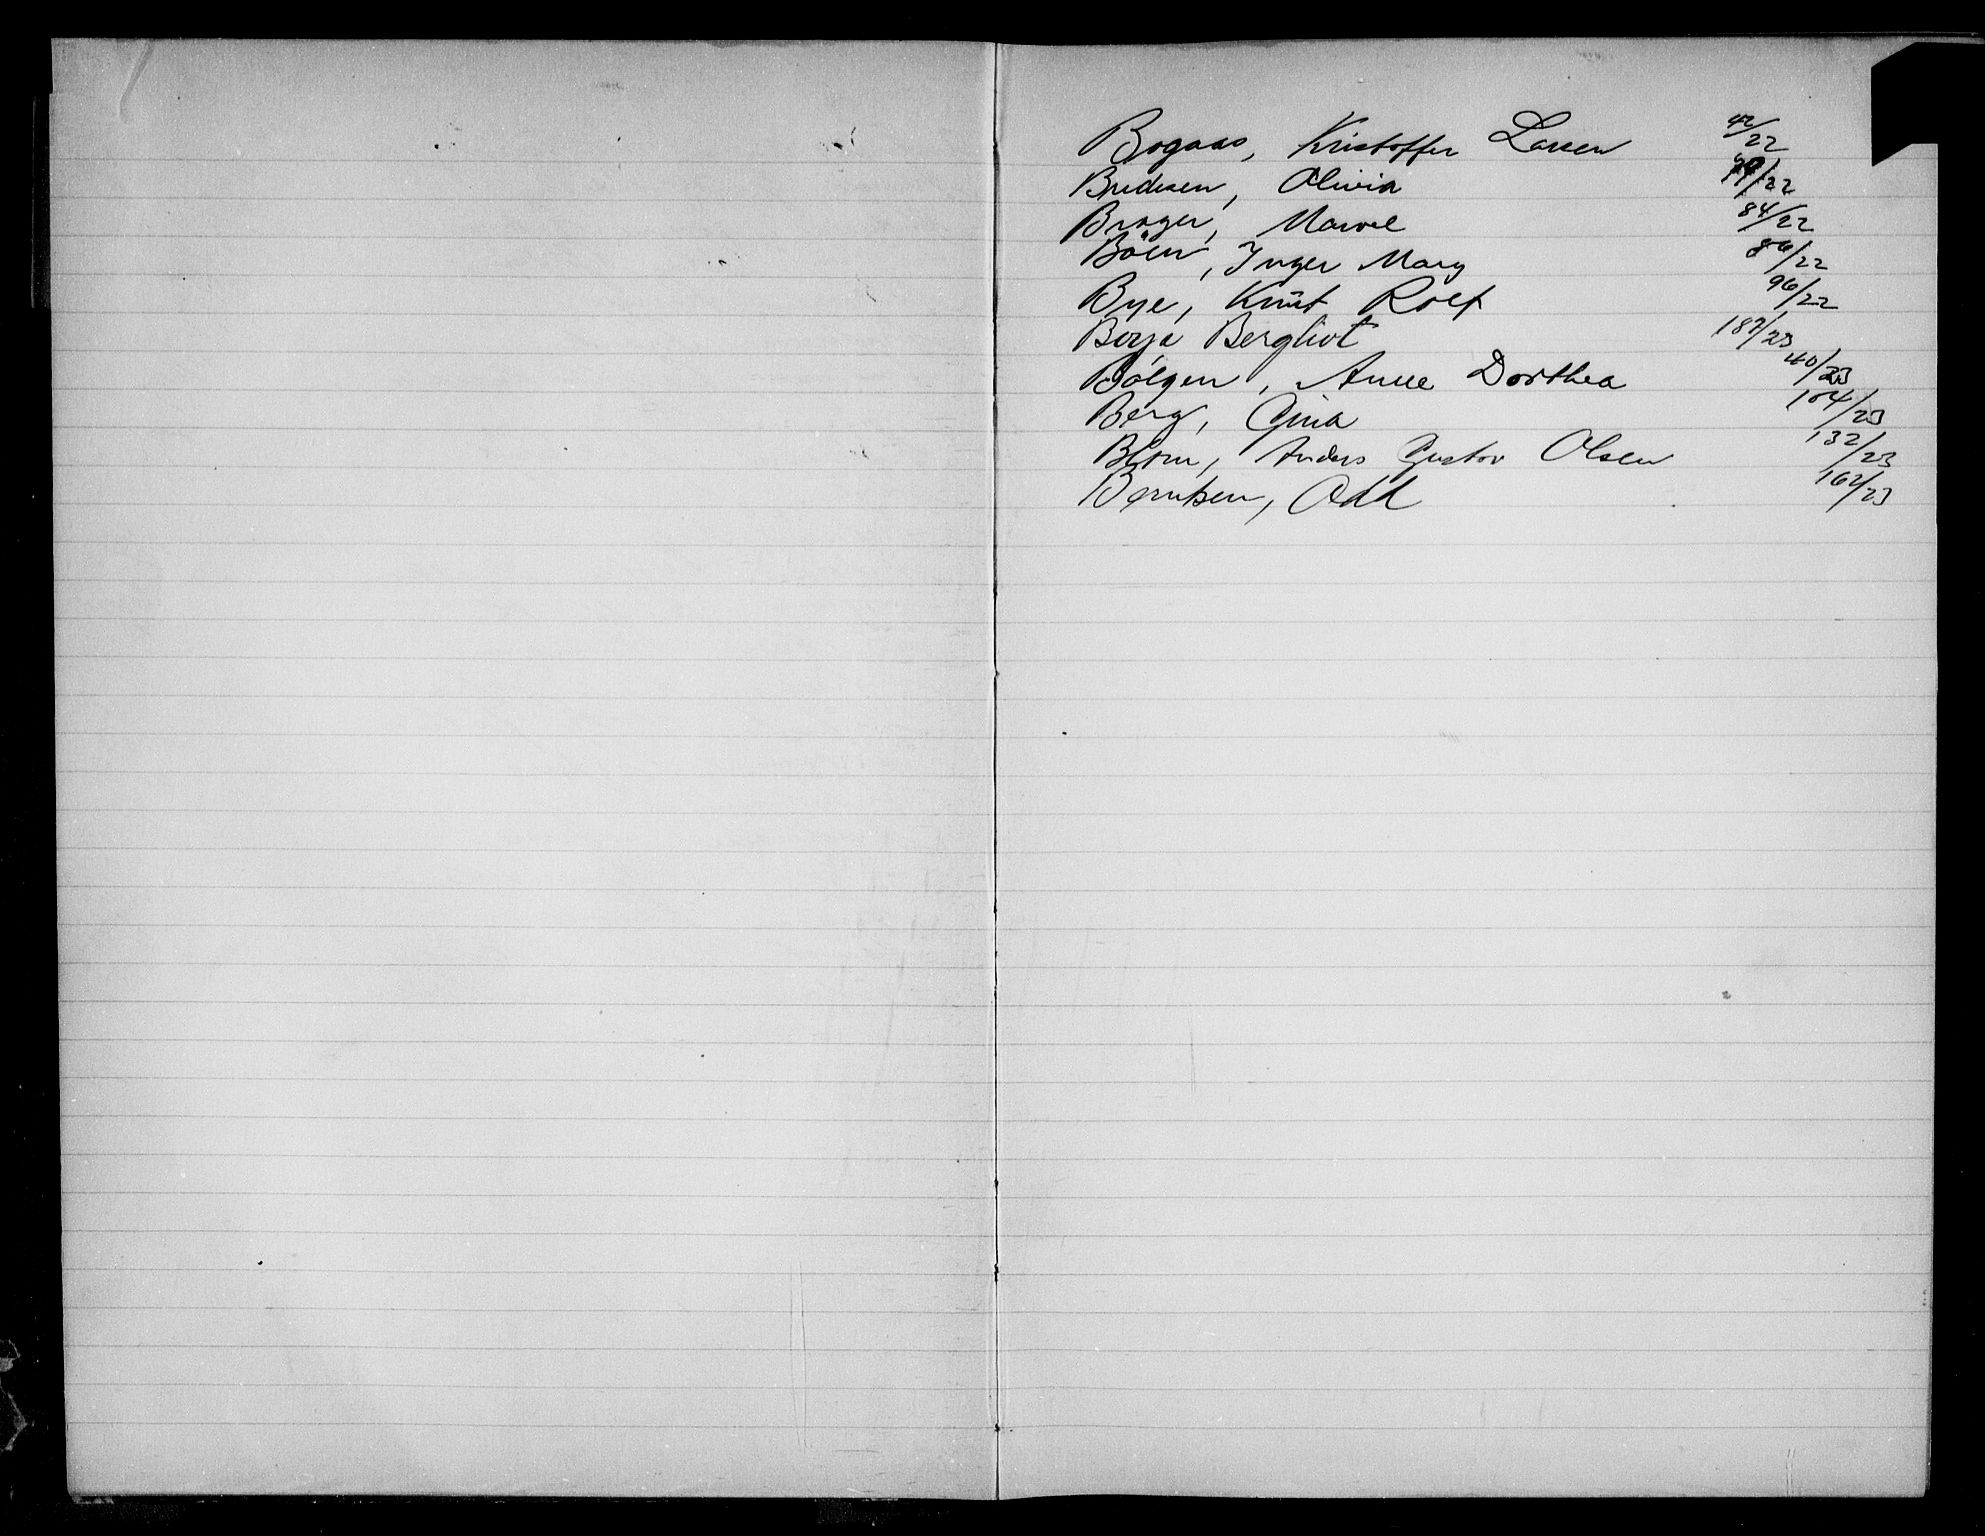 Bogaas, Kristoffer Larsen 42/22
Bredesen, Olivia /22
Brager, Marvel 84/22
Böen, Inger Mary 86/22
Bye, Knut Rolf 96/22
Borje Bergliot 187/23
Bölgen, Anne Dorthea 40/23
Berg, Gina 104/23
Blom, Anders Gustov Olsen 132/23
Berntsen, Odd 162/23